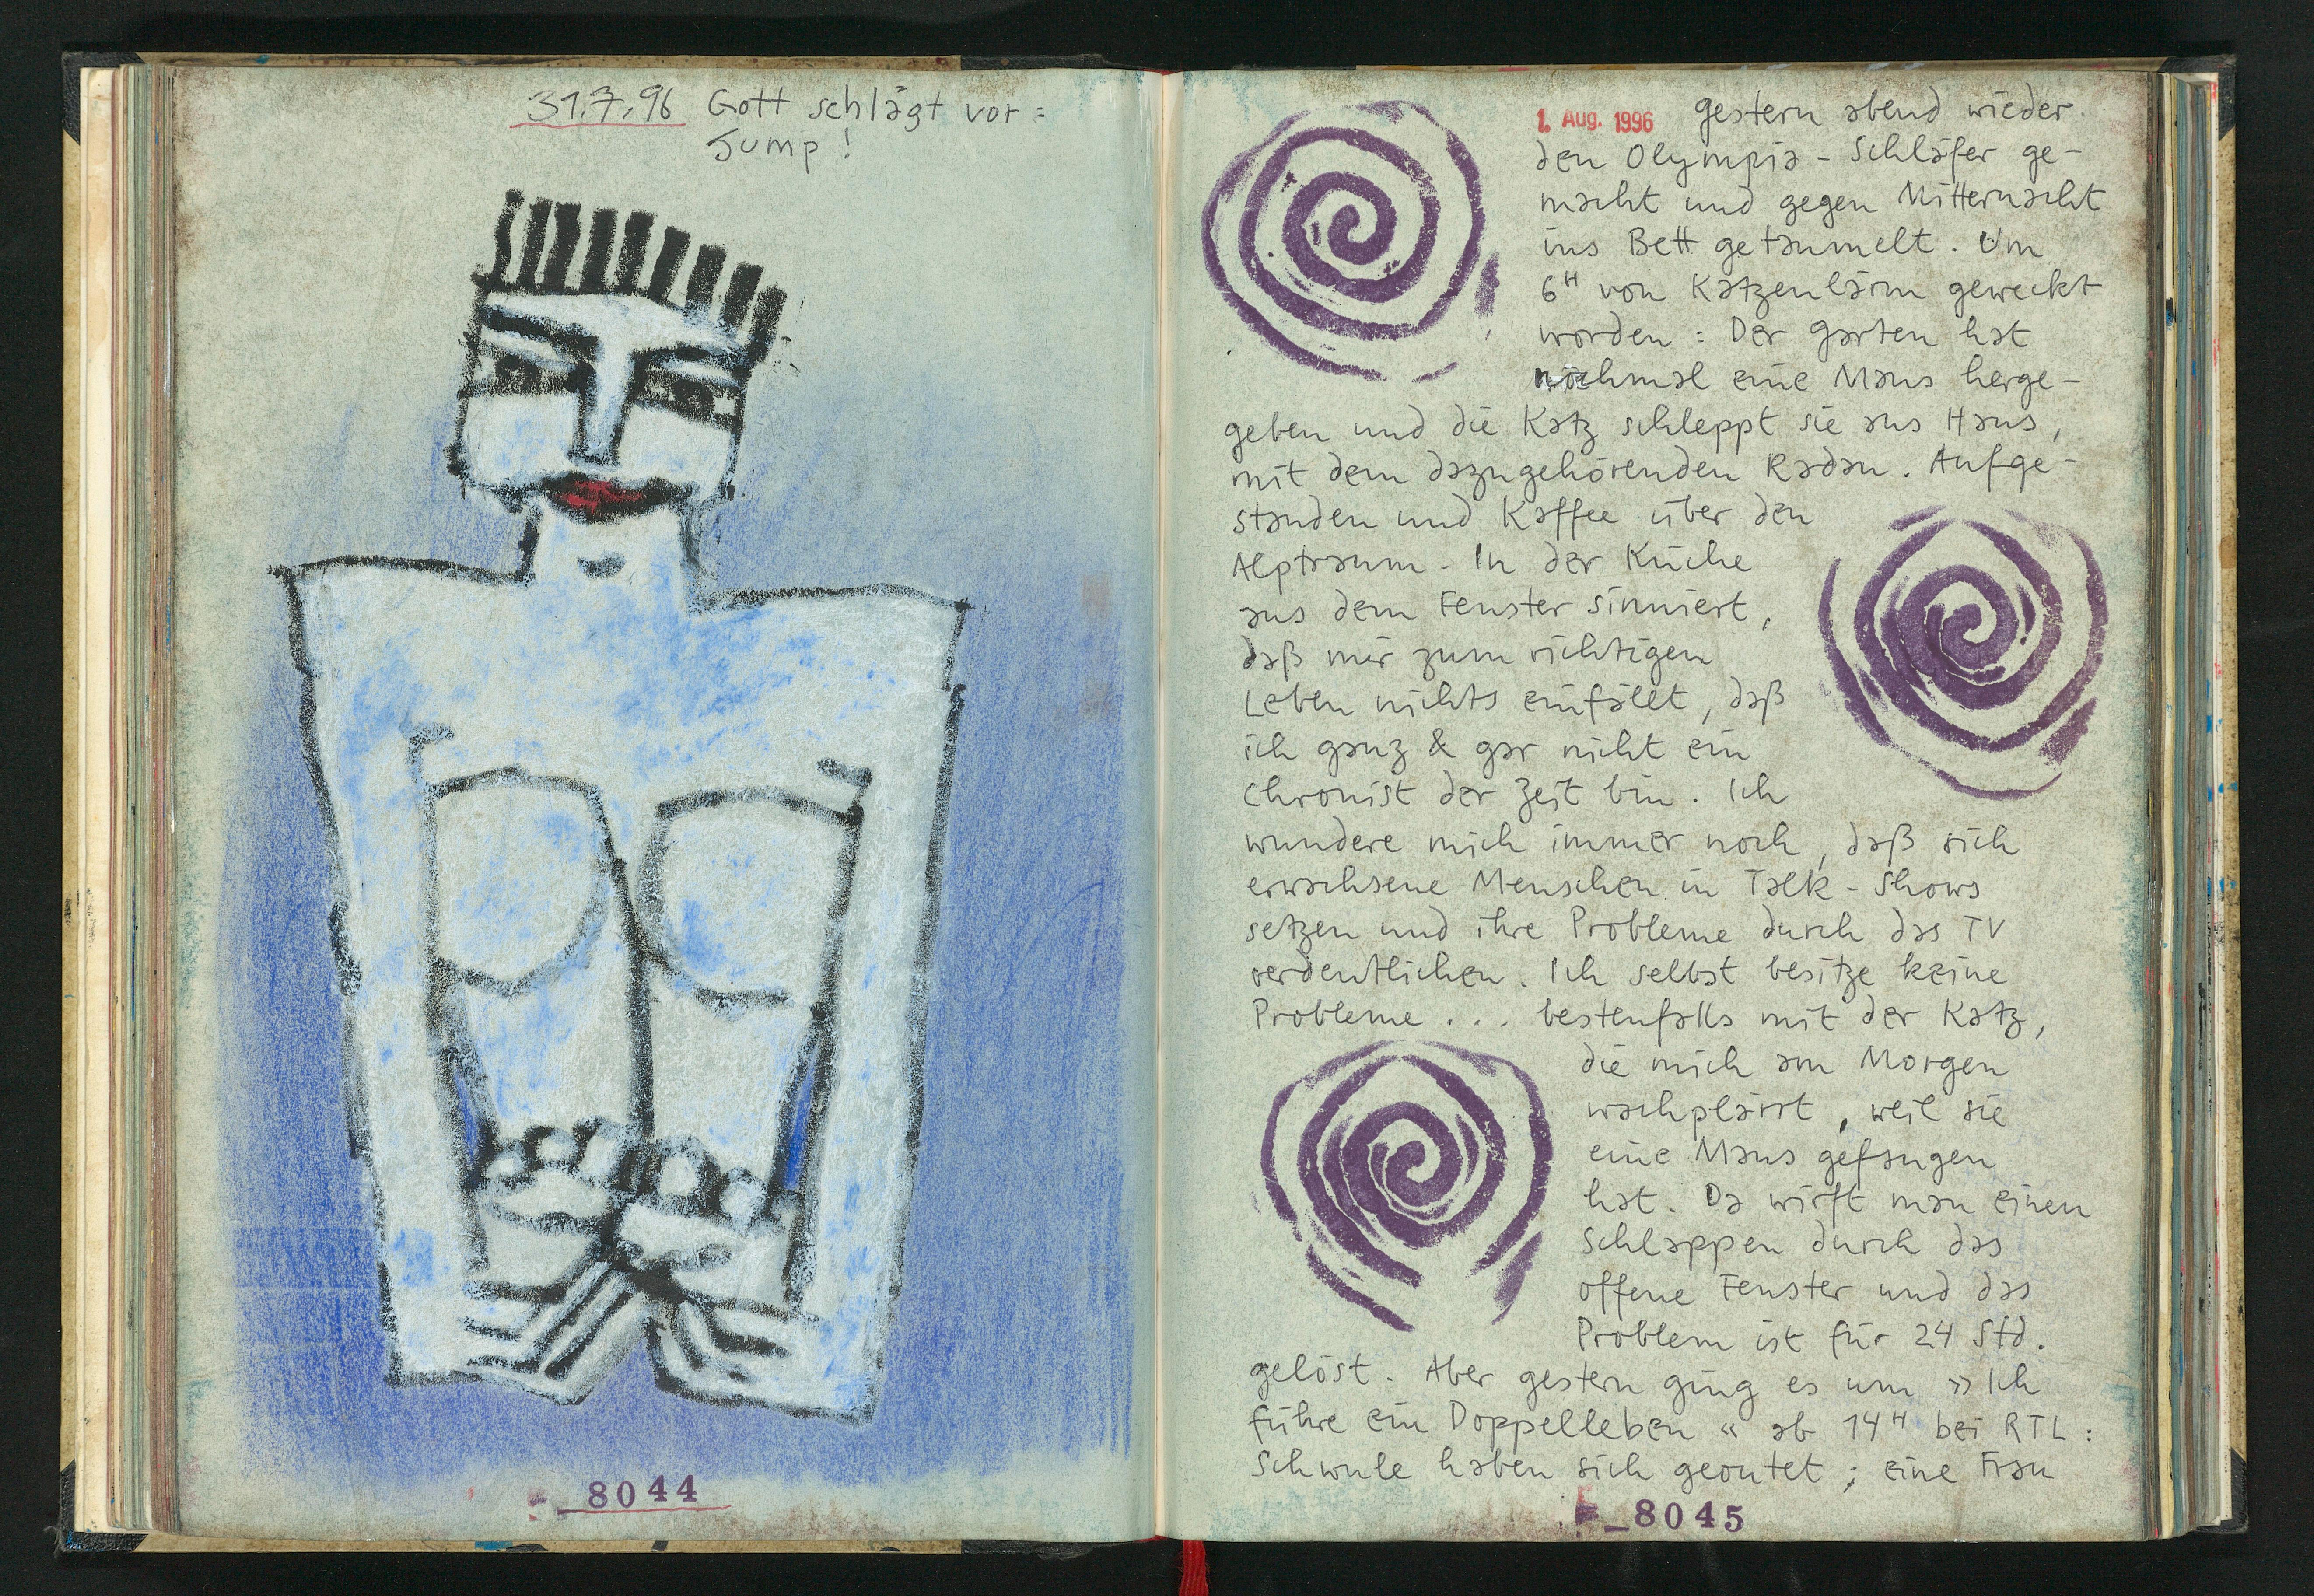 31.7.96 Gott schlägt vor:
Jump!
8044
1. Aug. 1996 gestern abend wieder
den Olympia-Schläfer ge-
macht und gegen Mitternacht
ins Bett getaumelt. Um
6H von Katzenlärm geweckt
worden: Der Garten hat
nochmal eine Maus herge-
geben und die Katz schleppt sie ans Haus,
mit dem dazugehörenden Radau. Aufge-
standen und Kaffee über den
Alptraum. In der Küche
aus dem Fenster sinniert,
daß mir zum richtigen
Leben nichts einfällt, daß
ich ganz & gar nicht ein
Chronist der Zeit bin. Ich
wundere mich immer noch, daß sich
erwachsene Menschen in Talk-Shows
setzen und ihre Probleme durch das TV
verdeutlichen. Ich selbst besitze keine
Probleme... bestenfalls mit der Katz,
die mich am Morgen
wachplärrt, weil sie
eine Maus gefangen
hat. Da wirft man einen
Schlappen durch das
offene Fenster und das
Problem ist für 24 Std.
gelöst. Aber gestern ging es um »Ich
führe ein Doppelleben« ab 14H bei RTL:
Schwule haben sich geoutet; eine Frau
8045